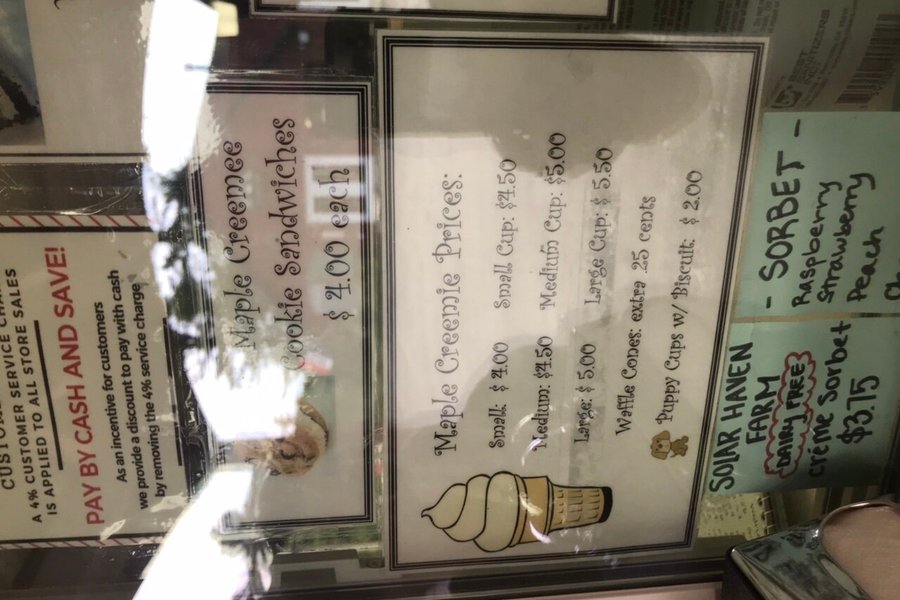 A 4% CUSTOMER SERVICE
IS APPLIED TO ALL STORE SALES
PAY BY CASH AND SAVE!
As an incentive for customers
we provide a discount to pay with cash
by removing the 4% service charge
Maple Creemee
Cookie Sandwiches
$ 4.00 each
Maple Creemie Prices:
Small: $ 4.00 Small Cup: $4.50
Medium: $4.50 Medium Cup: $5.00
Large: $ 5.00 Large Cup: $ 5.50
Waffle Cones: extra .25 cents
Puppy Cups w/ Biscuit: $ 2.00
SOLAR HAVEN
FARM
DAIRY FREE
crème Sorbet
$3.75
- SORBET -
Raspberry
Strawberry
Peach